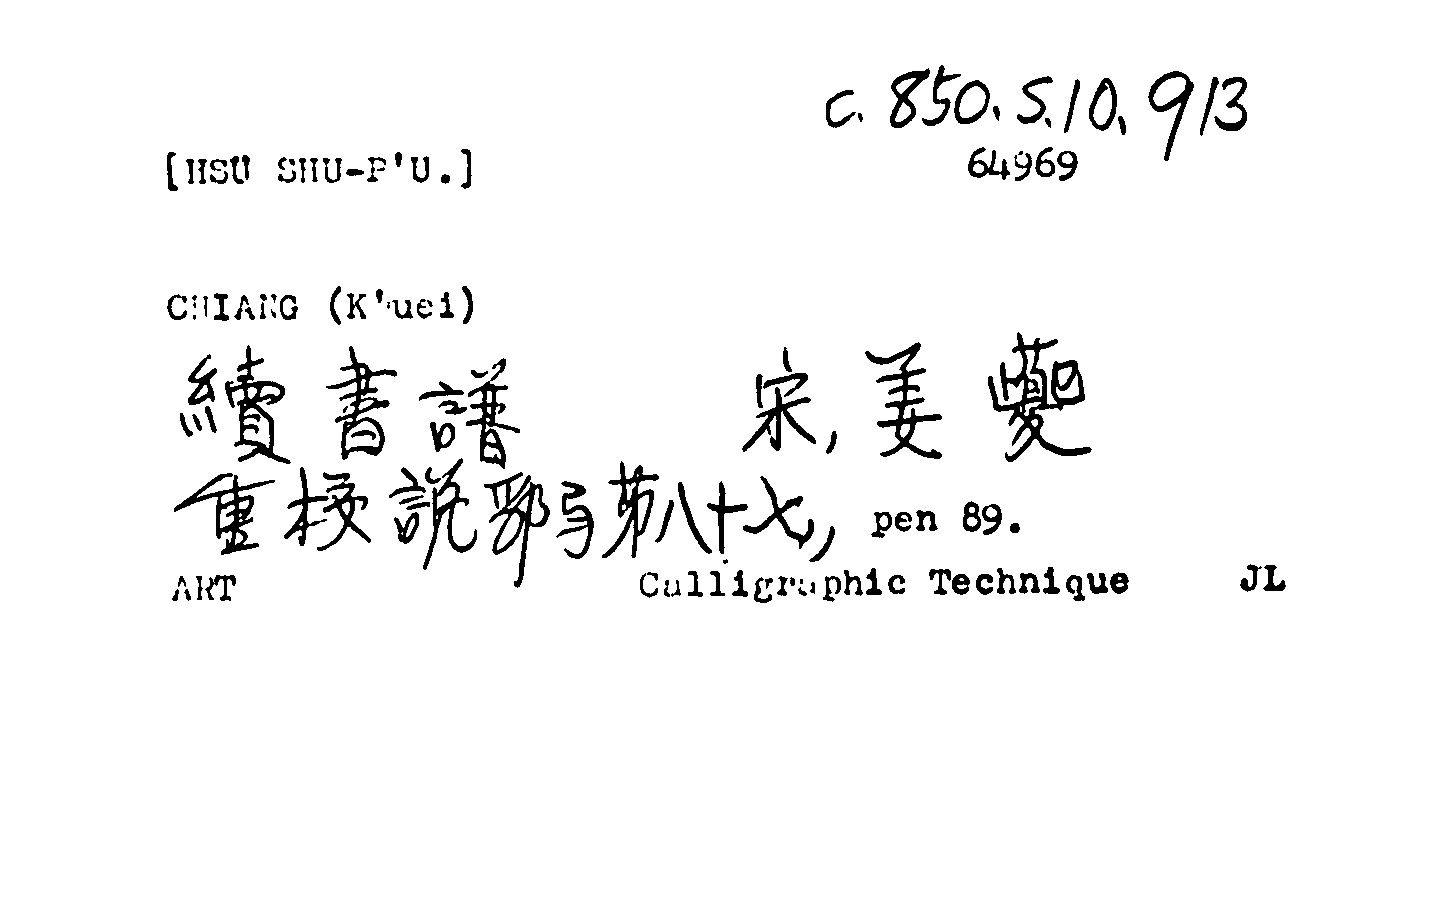 c. 850.5.10.913
64969
[HSU SHU-P'U.]
CHIANG (K'uei)
續書譜 宋, 姜夔
重校說郛弓第八十七, pen 89.
ART Calligraphic Technique JL